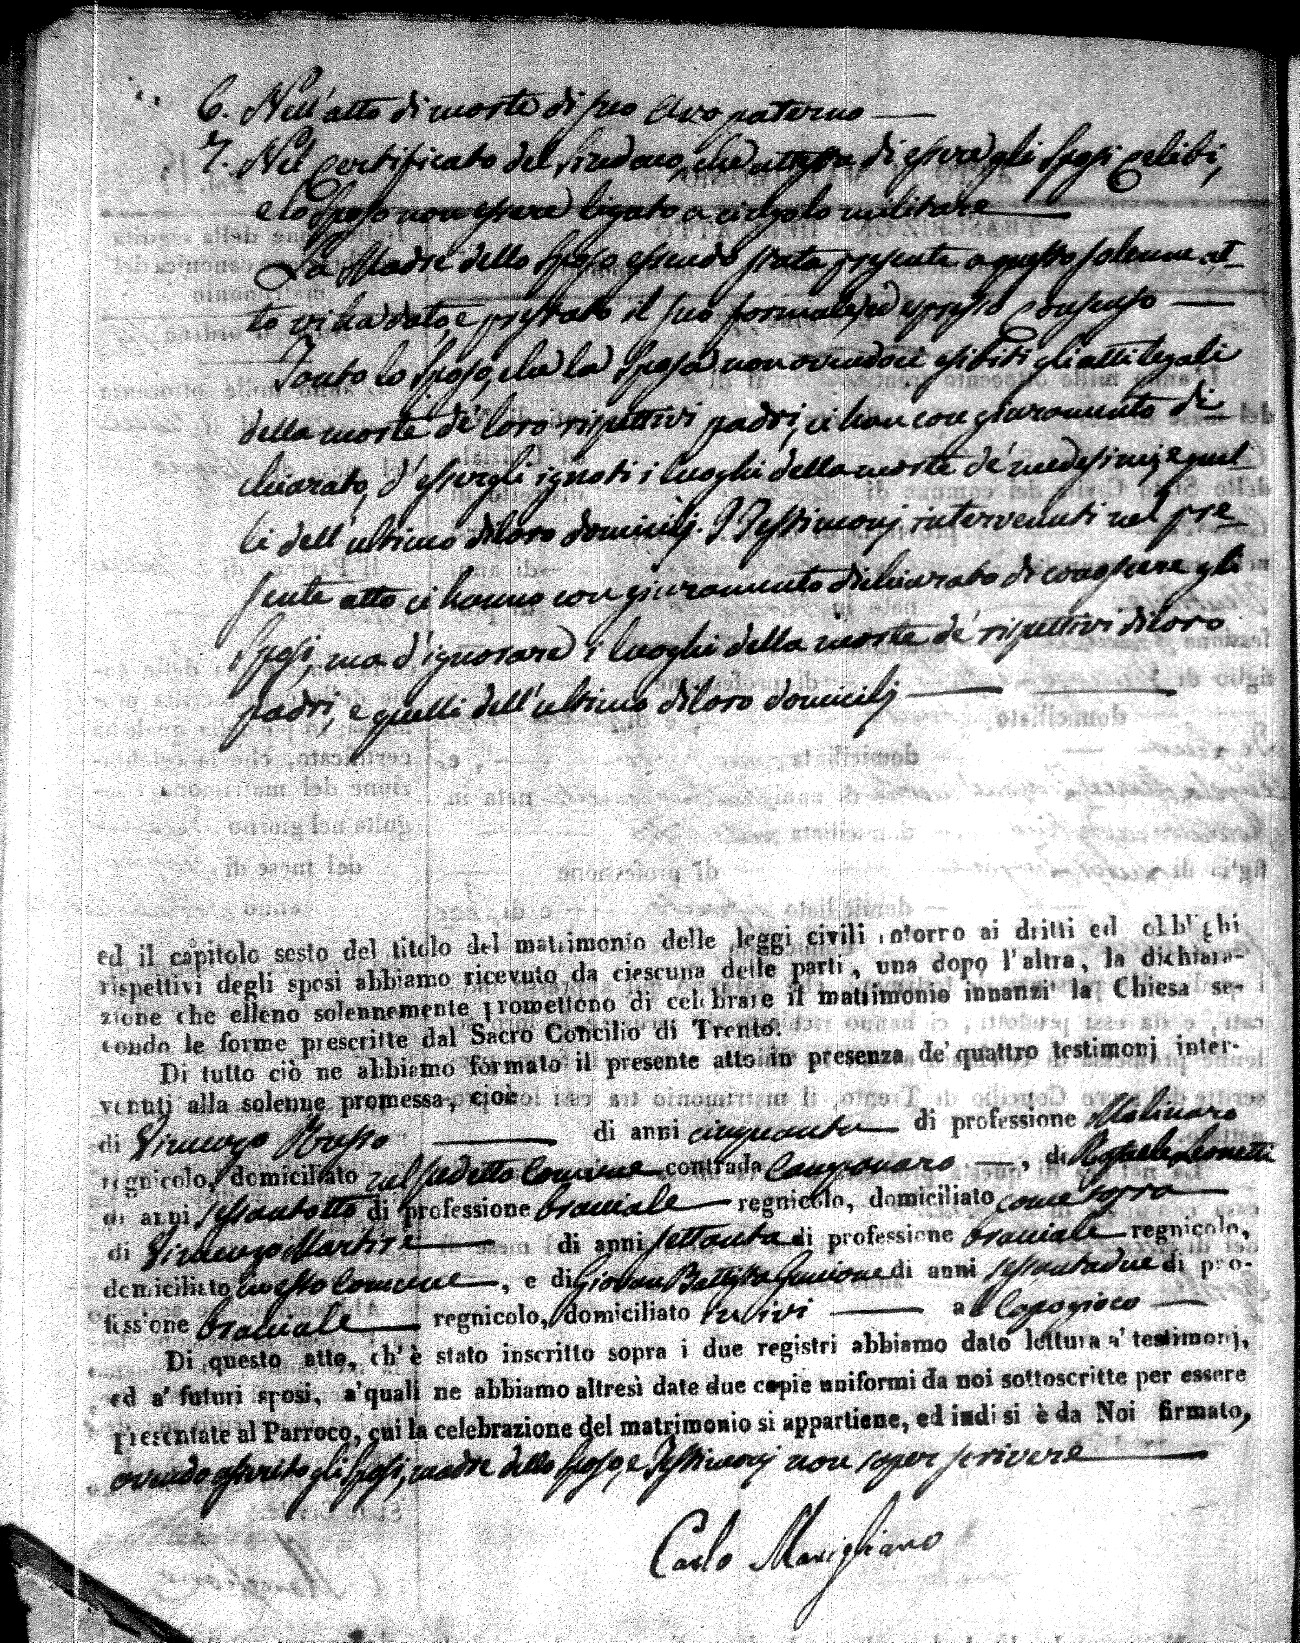 6. Nell'atto di morte di suo Avo paterno
7. Nel Certificato del Sindaco, che attesta di essere gli Sposi celibi,
e lo Sposo non essere ligato a cingolo militare
La Madre dello Sposo essendo stata presente a questo solenne at-
to vi ha dato, e prestato il suo formale, ed espresso Consenso
Tanto lo Sposo, che la Sposa non avendoci esibiti gli atti legali
della morte de' loro rispettivi padri, ci han con giuramento di-
chiarato, d'essergli ignoti i luoghi della morte de' medesimi, e quel-
li dell'ultimo di loro domicilj. I Testimonj intervenuti nel pre-
sente atto ci hanno con giuramento dichiarato di conoscere gli
Sposi, ma d'ignorare i luoghi della morte de' rispettivi di loro
padri, e quelli dell'ultimo di loro domicilj
ed il capitolo sesto del titolo del matrimonio delle leggi civili intorno ai dritti ed obblighi
rispettivi degli sposi abbiamo ricevuto da ciascuna delle parti, una dopo l'altra, la dichiara-
zione che elleno solennemente promettono di celebrare il matrimonio innanzi la Chiesa se-
condo le forme prescritte dal Sacro Concilio di Trento.
Di tutto ciò ne abbiamo formato il presente atto in presenza de' quattro testimonj inter-
venuti alla solenne promessa, cioè
di Vincenzo Russo di anni cinquanta di professione Molinaro
regnicolo, domiciliato nel sudetto Comune contrada Campanaro, di Rafaele Leonetti
di anni sessantotto di professione bracciale regnicolo, domiciliato come sopra
di Vincenzo Martire di anni settanta di professione bracciale regnicolo,
domiciliato in questo Comune, e di Giovan Battista di anni sessantadue di pro-
fessione bracciale regnicolo, domiciliato ivi a Capogioco
Di questo atto, ch'è stato inscritto sopra i due registri abbiamo dato lettura a' testimonj,
ed a' futuri sposi, a' quali ne abbiamo altresì date due copie uniformi da noi sottoscritte per essere
presentate al Parroco, cui la celebrazione del matrimonio si appartiene, ed indi si è da Noi firmato,
avendo asserito gli Sposi, madre dello Sposo, e Testimonj non saper scrivere
Carlo Marigliano